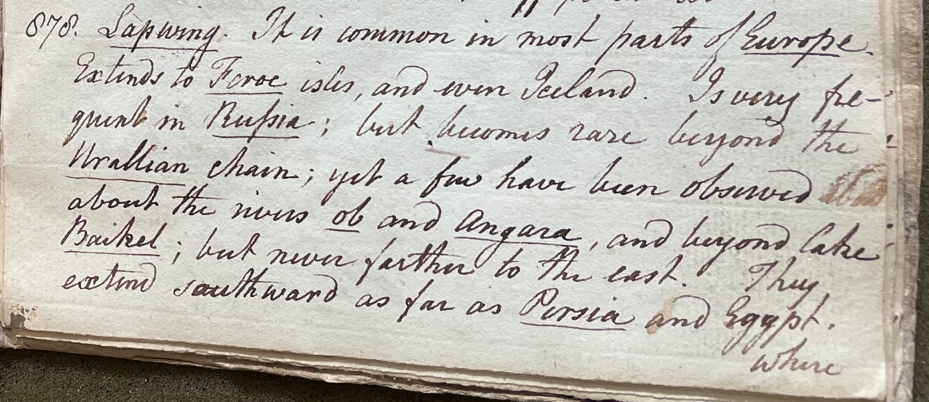 878. Lapwing. It is common in most parts of Europe.
Extends to Feroe isles, and even Iceland. Is very fre-
quent in Rußia; but becomes rare beyond the
Urallian chain; yet a few have been observed
about the rivers Ob and Angara, and beyond lake
Baikel; but never farther to the east. They
extend southward as far as Persia and Egypt.
where